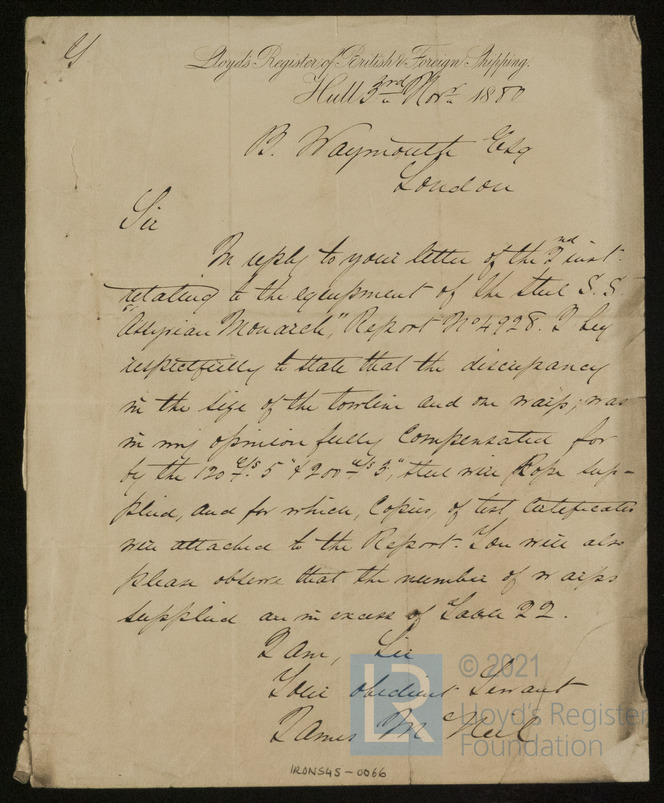 Lloyd's Register of British & Foreign Shipping.
Hull 3rd Novr 1880
B. Waymouth Esq
London
Sir
In reply to your letter of the 2nd inst.
relating to the equipment of the steel S.S.
"Assyrian Monarch", Report No 4928. I beg
respectfully to state that the discrepancy
in the size of the towline and one warp, was
in my opinion fully compensated for
by the 120 5" & 200 3", steel wire Rope sup-
plied, and for which, Copies, of test Certificates
were attached to the Report. You will also
please observe that the number of warps
supplied are in excess of Table 22.
I am, Sir
Your obedient Servant
James McNeil
IRONS45-0066
© 2021
LR
Lloyd's Register
Foundation